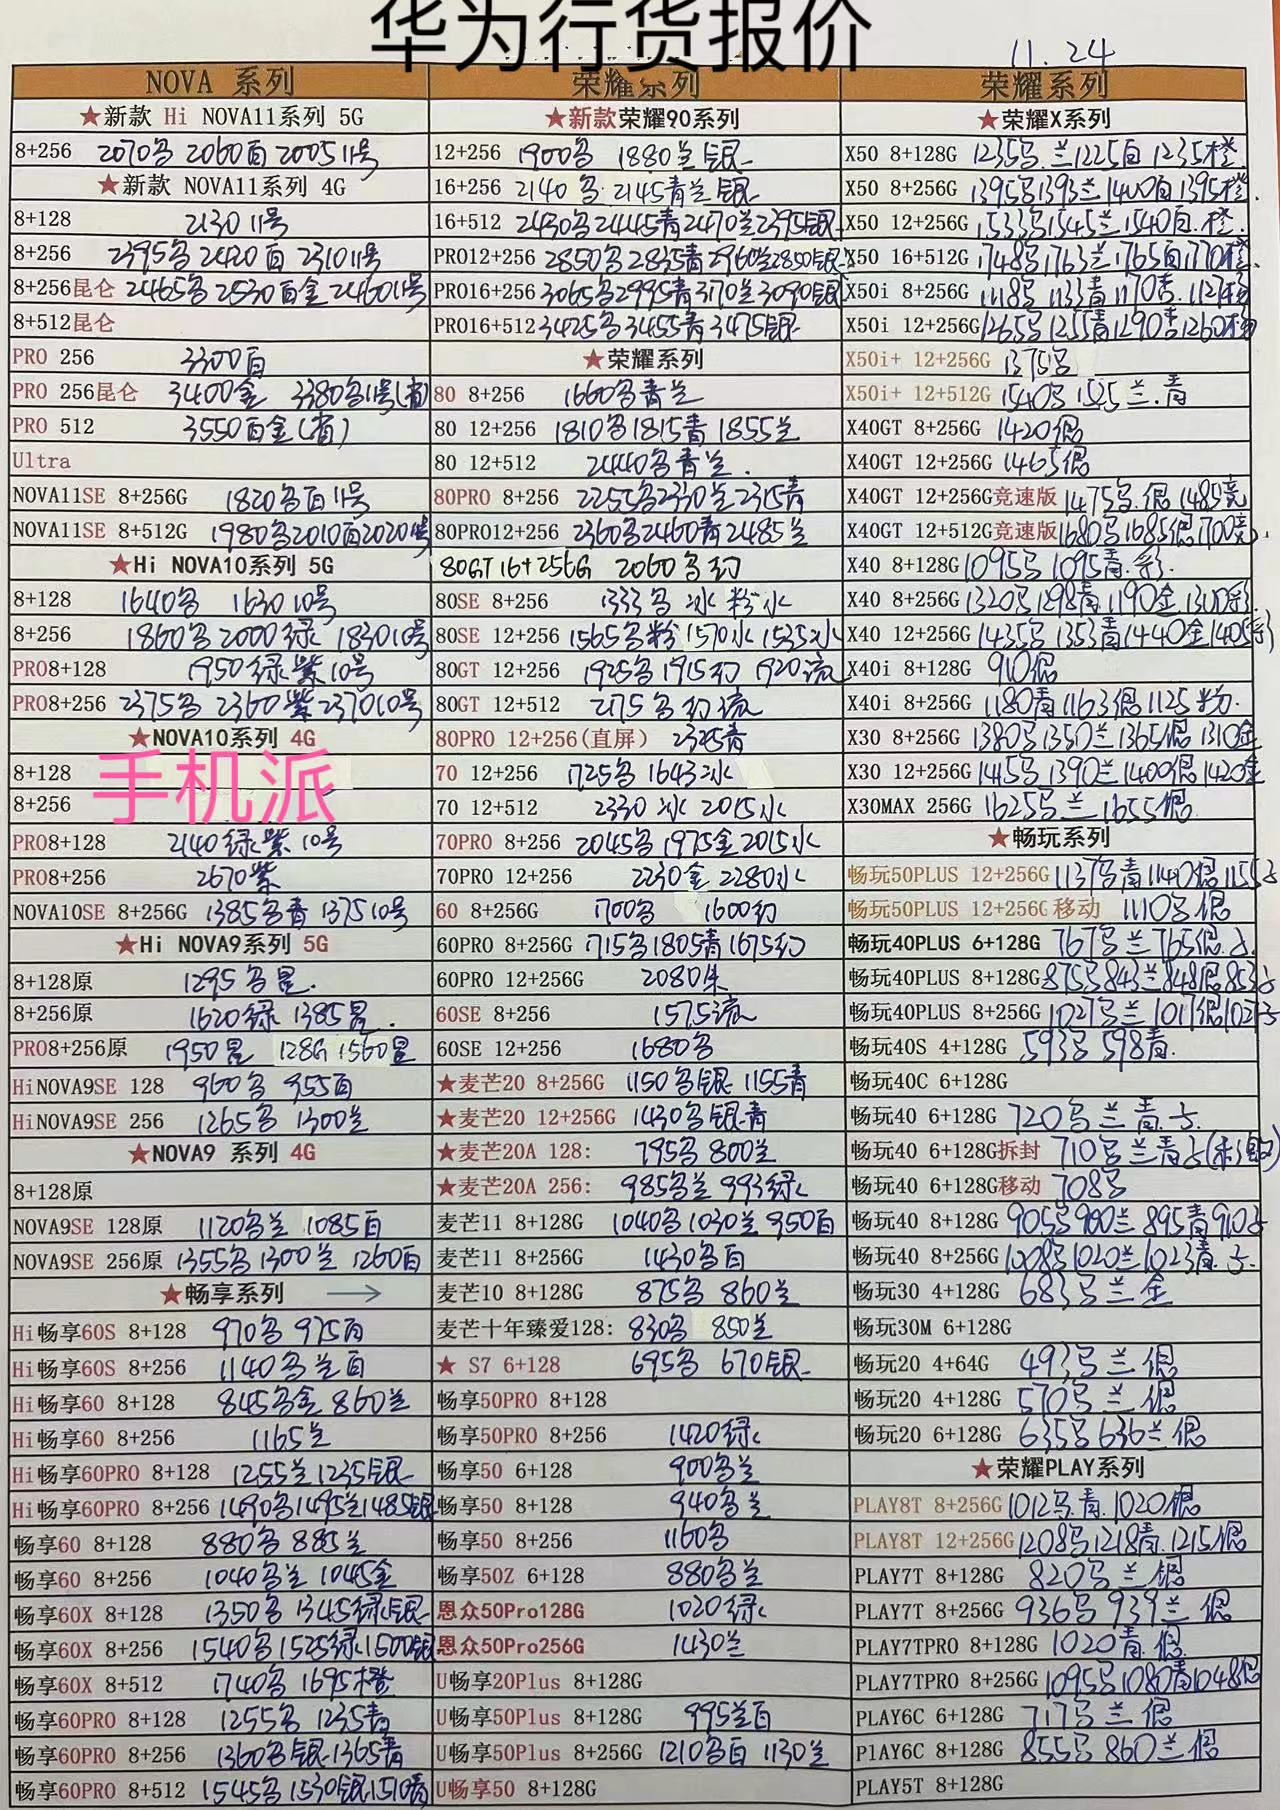 华为行货报价
11.24
NOVA 系列
★新款 Hi NOVA11系列 5G
8+256 2070名 2060百 2005 11号
★新款 NOVA11系列 4G
8+128 2130 11号
8+256 2395名 2420百 2310 11号
8+256昆仑 2465名 2530百金 2460 11号
8+512昆仑
PRO 256 3300百
PRO 256昆仑 3400金 3380名11号
PRO 512 3550百金
Ultra
NOVA11SE 8+256G 1820名百11号
NOVA11SE 8+512G 1980名2010百2020 11号
★Hi NOVA10系列 5G
8+128 1640名 1630 10号
8+256 1860名 2000绿 1830 10号
PRO8+128 1950绿紫10号
PRO8+256 2375名 2360紫 2370 10号
★NOVA10系列 4G
8+128
手机派
8+256
PRO8+128 2140绿紫10号
PRO8+256 2670紫
NOVA10SE 8+256G 1385名青 1375 10号
★Hi NOVA9系列 5G
8+128原 1295名星
8+256原 1620绿 1385星
PRO8+256原 1950星 128G 1560星
HiNOVA9SE 128 960名 955百
HiNOVA9SE 256 1265名 1300兰
★NOVA9 系列 4G
8+128原
NOVA9SE 128原 1120名兰 1085百
NOVA9SE 256原 1355名 1300兰 1260百
★畅享系列 →
Hi畅享60S 8+128 970名 975百
Hi畅享60S 8+256 1140名兰百
Hi畅享60 8+128 845名金 860兰
Hi畅享60 8+256 1165兰
Hi畅享60PRO 8+128 1255兰 1235银
Hi畅享60PRO 8+256 1490名1495兰1485银
畅享60 8+128 880名 885兰
畅享60 8+256 1040名兰 1045金
畅享60X 8+128 1350名 1345绿银
畅享60X 8+256 1540名1525绿1500银
畅享60X 8+512 1740名 1695橙
畅享60PRO 8+128 1255名 1235青
畅享60PRO 8+256 1360名银 1365青
畅享60PRO 8+512 1545名1530银1510青
荣耀系列
★新款荣耀90系列
12+256 1900名 1880兰银
16+256 2140名 2145青兰银
16+512 2430名2445青2470兰2395银
PRO12+256 2850名2835青2960兰2850银
PRO16+256 3065名2995青3170兰3090银
PRO16+512 3425名3455青3475银
★荣耀系列
80 8+256 1660名青兰
80 12+256 1810名1815青 1855兰
80 12+512 2440名青兰
80PRO 8+256 2255名2330兰2315青
80PRO12+256 2360名2460青2485兰
80GT 16+256G 2060名幻
80SE 8+256 1333名 冰 粉水
80SE 12+256 1565名粉 1570水 1535冰
80GT 12+256 1925名 1915幻 1920流
80GT 12+512 2175名幻流
80PRO 12+256(直屏) 2325青
70 12+256 1725名 1643冰
70 12+512 2330冰 2015水
70PRO 8+256 2045名 1975金2015水
70PRO 12+256 2230金 2280水
60 8+256G 1700名 1600幻
60PRO 8+256G 1715名1805青1675幻
60PRO 12+256G 2080朱
60SE 8+256 1575流
60SE 12+256 1680名
★麦芒20 8+256G 1150名银 1155青
★麦芒20 12+256G 1430名银青
★麦芒20A 128: 795名 800兰
★麦芒20A 256: 985名兰 993绿
麦芒11 8+128G 1040名 1030兰 950百
麦芒11 8+256G 1430名百
麦芒10 8+128G 875名 860兰
麦芒十年臻爱128: 830名 850兰
★ S7 6+128 695名 670银
畅享50PRO 8+128
畅享50PRO 8+256 1420绿
畅享50 6+128 900名兰
畅享50 8+128 940名兰
畅享50 8+256 1160名
畅享50Z 6+128 880名兰
恩众50Pro128G 1020绿
恩众50Pro256G 1430兰
U畅享20Plus 8+128G
U畅享50Plus 8+128G 995兰百
U畅享50Plus 8+256G 1210名百 1130兰
U畅享50 8+128G
荣耀系列
★荣耀X系列
X50 8+128G 1235名.兰1225百 1235橙
X50 8+256G 1395名1393兰1400百1395橙
X50 12+256G 1533名1545兰1540百.橙
X50 16+512G 1748名1763兰1765百1770橙
X50i 8+256G 1118名 1133青 1170杏
X50i 12+256G 1265名1255青1290杏1260粉
X50i+ 12+256G 1375名
X50i+ 12+512G 1540名 1525兰.青
X40GT 8+256G 1420银
X40GT 12+256G 1465银
X40GT 12+256G竞速版 1475名.银 1485竞
X40GT 12+512G竞速版 1680名1685银1700竞
X40 8+128G 1095名 1095青.彩
X40 8+256G 1320名1298青1190金 1300彩
X40 12+256G 1435名1353青1440金1405彩
X40i 8+128G 910银
X40i 8+256G 1180青1163银1125粉
X30 8+256G 1380名1350兰1365银 1310金
X30 12+256G 1415名1390兰1400银1420金
X30MAX 256G 1625名兰 1655银
★畅玩系列
畅玩50PLUS 12+256G 1137名青1140银1155
畅玩50PLUS 12+256G 移动 1110名银
畅玩40PLUS 6+128G 767名兰765银
畅玩40PLUS 8+128G 875名843兰848银853
畅玩40PLUS 8+256G 1027名兰 1017银1027
畅玩40S 4+128G 593名 598青
畅玩40C 6+128G
畅玩40 6+128G 720名兰青
畅玩40 6+128G拆封 710名兰青
畅玩40 6+128G移动 708名
畅玩40 8+128G 905名900兰 895青910
畅玩40 8+256G 1008名1020兰1023青
畅玩30 4+128G 683名兰金
畅玩30M 6+128G
畅玩20 4+64G 493名兰银
畅玩20 4+128G 570名兰银
畅玩20 6+128G 635名636兰银
★荣耀PLAY系列
PLAY8T 8+256G 1012名.青.1020银
PLAY8T 12+256G 1208名1218青.1215银
PLAY7T 8+128G 820名兰银
PLAY7T 8+256G 936名939兰 银
PLAY7TPRO 8+128G 1020青.银
PLAY7TPRO 8+256G 1095名1080青1048银
PLAY6C 6+128G 717名兰银
PlAY6C 8+128G 855名 860兰银
PLAY5T 8+128G